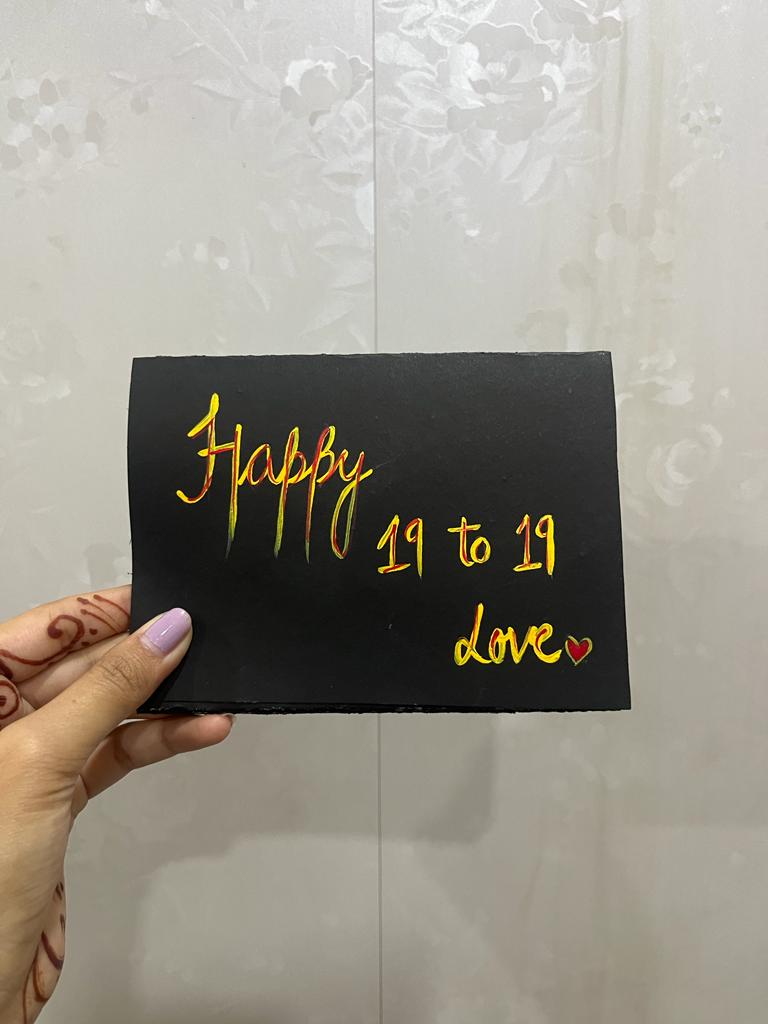 Happy
19 to 19
Love